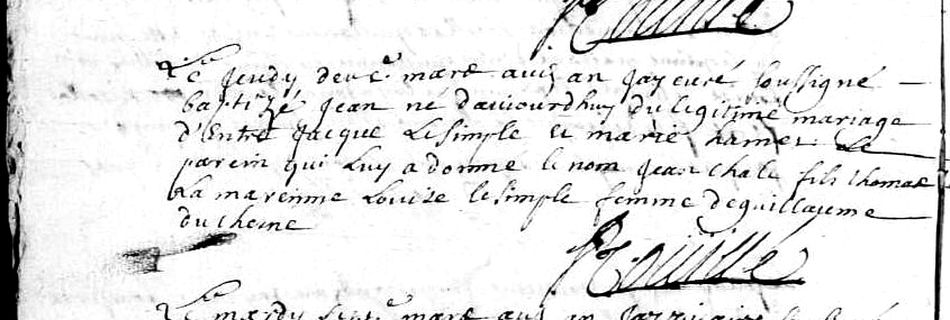 Le Jeudy deuxe. mare aud. an Jay curé soussigné
baptizé Jean né daujourdhuy du legitime mariage
d'Entre Jacque Le simple et marie hamer Le
parein qui Luy a donné le nom Jean Chale fils thomas
La mareinne Louize le simple femme de guillaume
du chesne
Le mardy sept. mare aud. an